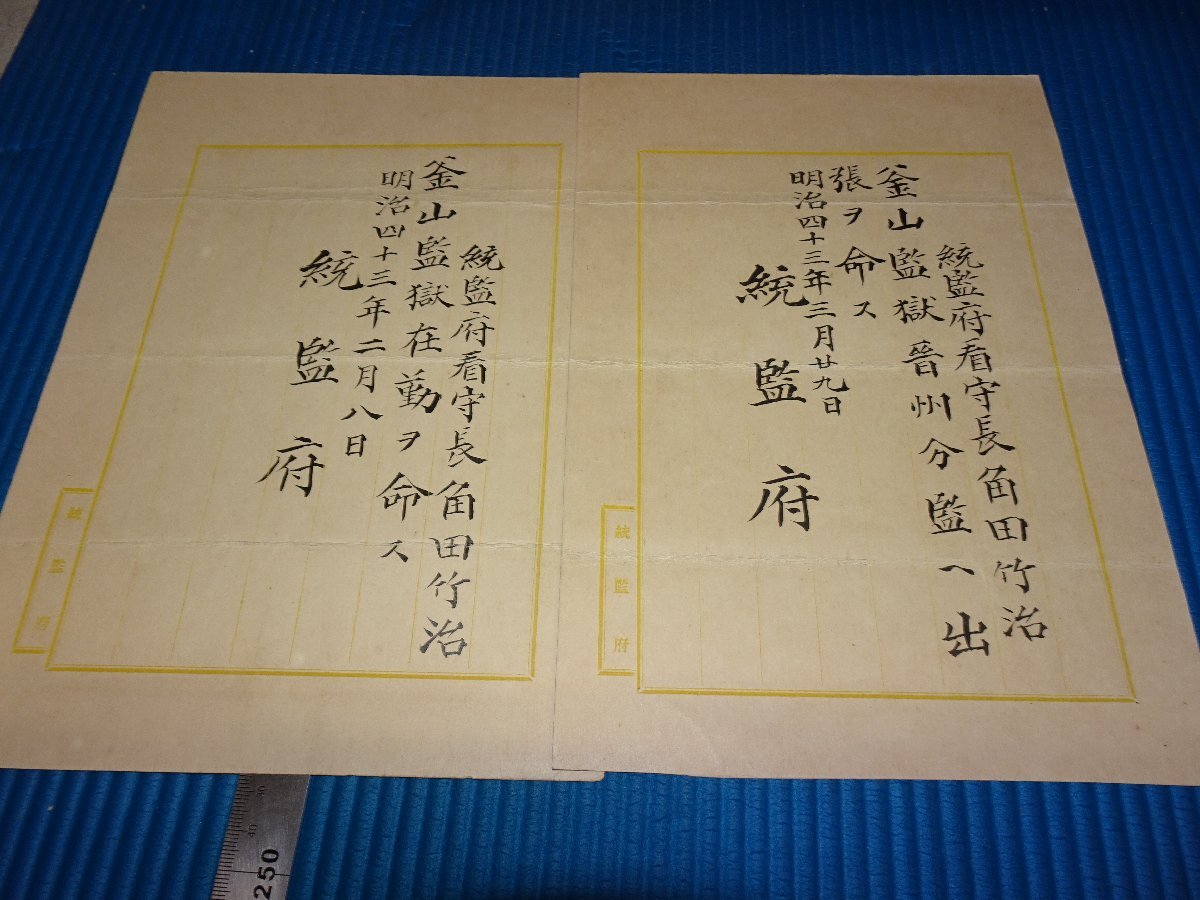 統監府看守長角田竹治
釜山監獄晉州分監ヘ出
張ヲ命ス
明治四十三年三月廿九日
統監府
統監府
統監府看守長角田竹治
釜山監獄在勤ヲ命ス
明治四十三年二月八日
統監府
統監府
250
40